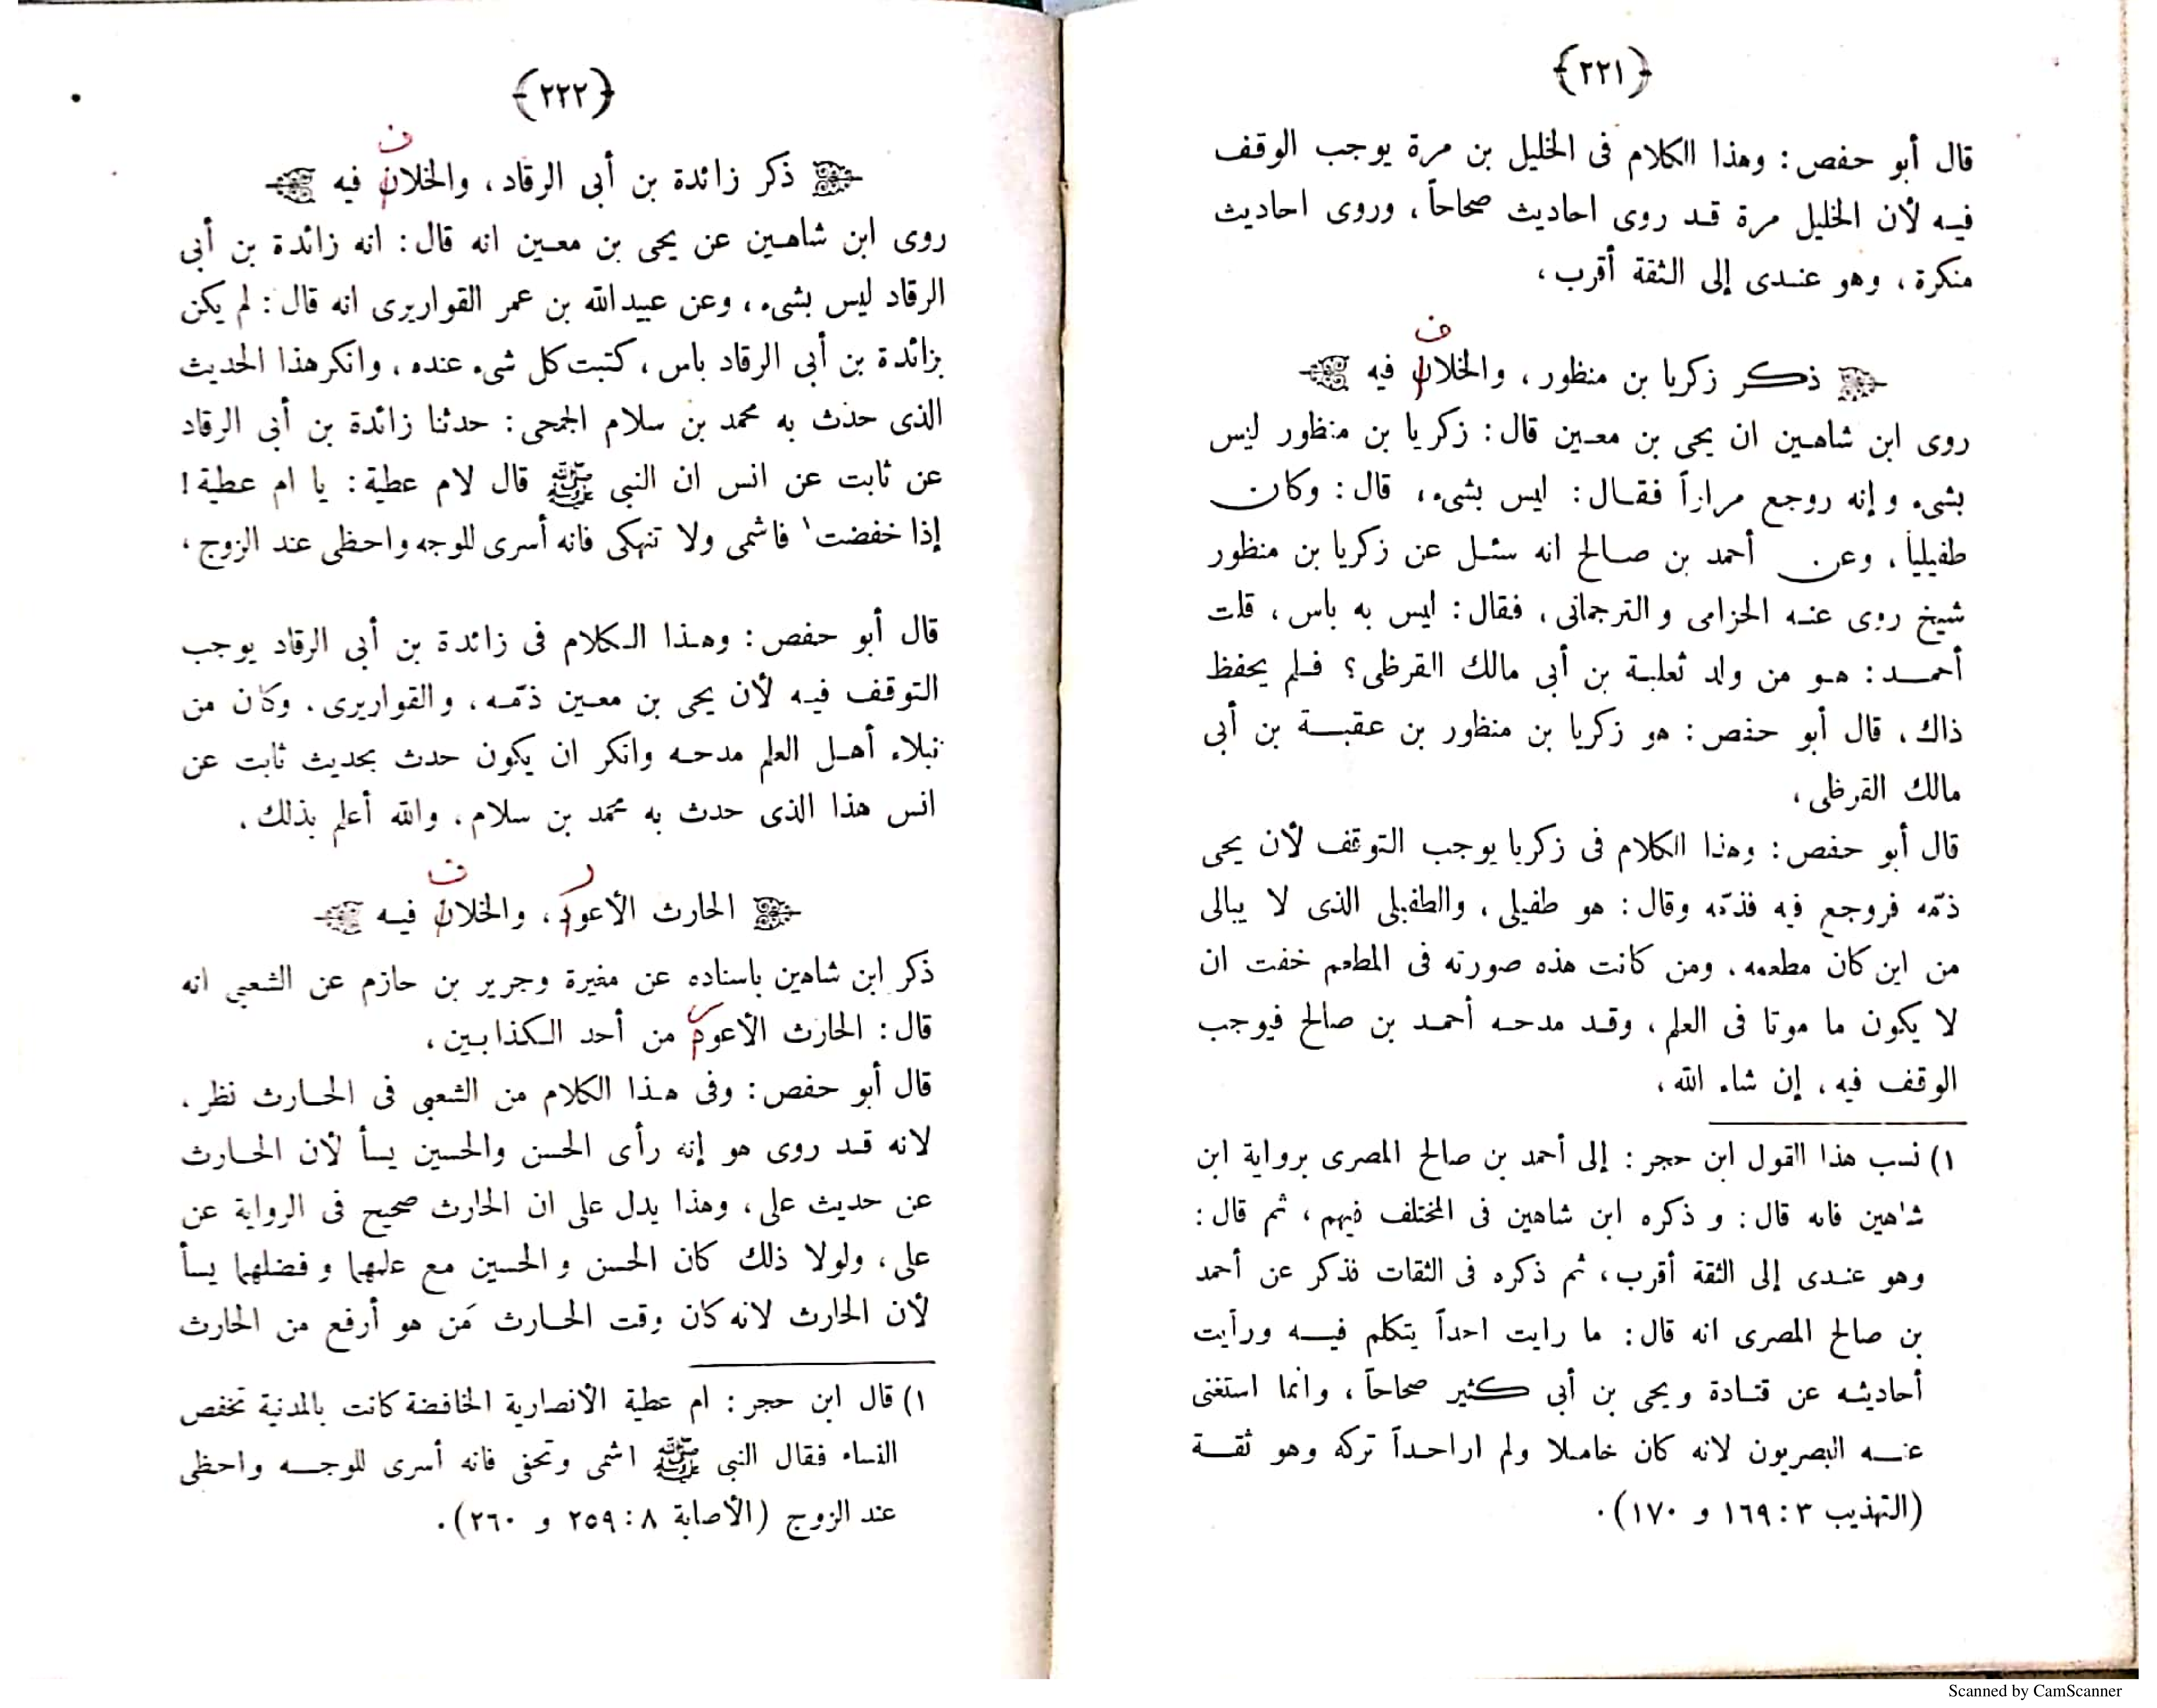 ﴿٢٢١﴾
قال أبو حفص: وهذا الكلام فى الخليل بن مرة يوجب الوقف
فيه لأن الخليل مرة قد روى احاديث صحاحاً، وروى احاديث
منكرة، وهو عندى إلى الثقة أقرب،
ف
ذكر زكريا بن منظور، والخلان فيه
روى ابن شاهين ان يحى بن معين قال: زكريا بن منظور ليس
بشىء وإنه روجع مراراً فقال: ليس بشىء، قال: وكان
طفيلياً، وعن أحمد بن صالح انه سئل عن زكريا بن منظور
شيخ روى عنه الحزامى والترجمانى، فقال: ليس به باس، قلت
أحمد: هو من ولد ثعلبة بن أبى مالك القرظى؟ فلم يحفظ
ذاك، قال أبو حفص: هو زكريا بن منظور بن عقبة بن أبى
مالك القرظى،
قال أبو حفص: وهذا الكلام فى زكريا يوجب التوقف لأن يحى
ذمّه فروجع فيه فذمّه وقال: هو طفيلى، والطفيلى الذى لا يبالى
من اين كان مطعمه، ومن كانت هذه صورته فى المطعم خفت ان
لا يكون ما موتا فى العلم، وقد مدحه أحمد بن صالح فيوجب
الوقف فيه، إن شاء الله،
١) نسب هذا القول ابن حجر: إلى أحمد بن صالح المصرى برواية ابن
شاهين فانه قال: و ذكره ابن شاهين فى المختلف فيهم، ثم قال:
وهو عندى إلى الثقة أقرب، ثم ذكره فى الثقات فذكر عن أحمد
بن صالح المصرى انه قال: ما رايت احداً يتكلم فيه ورأيت
أحاديثه عن قتادة ويحى بن أبى كثير صحاحاً، وانما استغنى
عنه البصريون لانه كان خاملا ولم اراحداً تركه وهو ثقة
(التهذيب ٣: ١٦٩ و ١٧٠).
﴿٢٢٢﴾
ف
ذكر زائدة بن أبى الرقاد، والخلان فيه
روى ابن شاهين عن يحى بن معين انه قال: انه زائدة بن أبى
الرقاد ليس بشىء، وعن عبيدالله بن عمر القواريرى انه قال: لم يكن
بزائدة بن أبى الرقاد باس، كتبت كل شىء عنده، وانكر هذا الحديث
الذى حدث به محمد بن سلام الجمحى: حدثنا زائدة بن أبى الرقاد
عن ثابت عن انس ان النبى ﷺ قال لام عطية: يا ام عطية!
إذا خفضت١ فاشمى ولا تنهكى فانه أسرى للوجه واحظى عند الزوج،
قال أبو حفص: وهذا الكلام فى زائدة بن أبى الرقاد يوجب
التوقف فيه لأن يحى بن معين ذمّه، والقواريرى. وكان من
نبلاء أهل العلم مدحه وانكر ان يكون حدث بحديث ثابت عن
انس هذا الذى حدث به محمد بن سلام، والله أعلم بذلك،
ر ف
الحارث الأعود، والخلان فيه
ذكر ابن شاهين باسناده عن مغيرة وجرير بن حازم عن الشعبى انه
قال: الحارث الأعود من أحد الكذابين،
قال أبو حفص: وفى هذا الكلام من الشعبى فى الحارث نظر،
لانه قد روى هو إنه رأى الحسن والحسين يسأ لأن الحارث
عن حديث على، وهذا يدل على ان الحارث صحيح فى الرواية عن
على، ولولا ذلك كان الحسن والحسين مع علمهما وفضلهما يسأ
لأن الحارث لانه كان وقت الحارث مَن هو أرفع من الحارث
١) قال ابن حجر: ام عطية الأنصارية الخافضة كانت بالمدنية تخفص
النساء فقال النبى ﷺ اشمى وتحفى فانه أسرى للوجه واحظى
عند الزوج (الأصابة ٨: ٢٥٩ و ٢٦٠).
Scanned by CamScanner